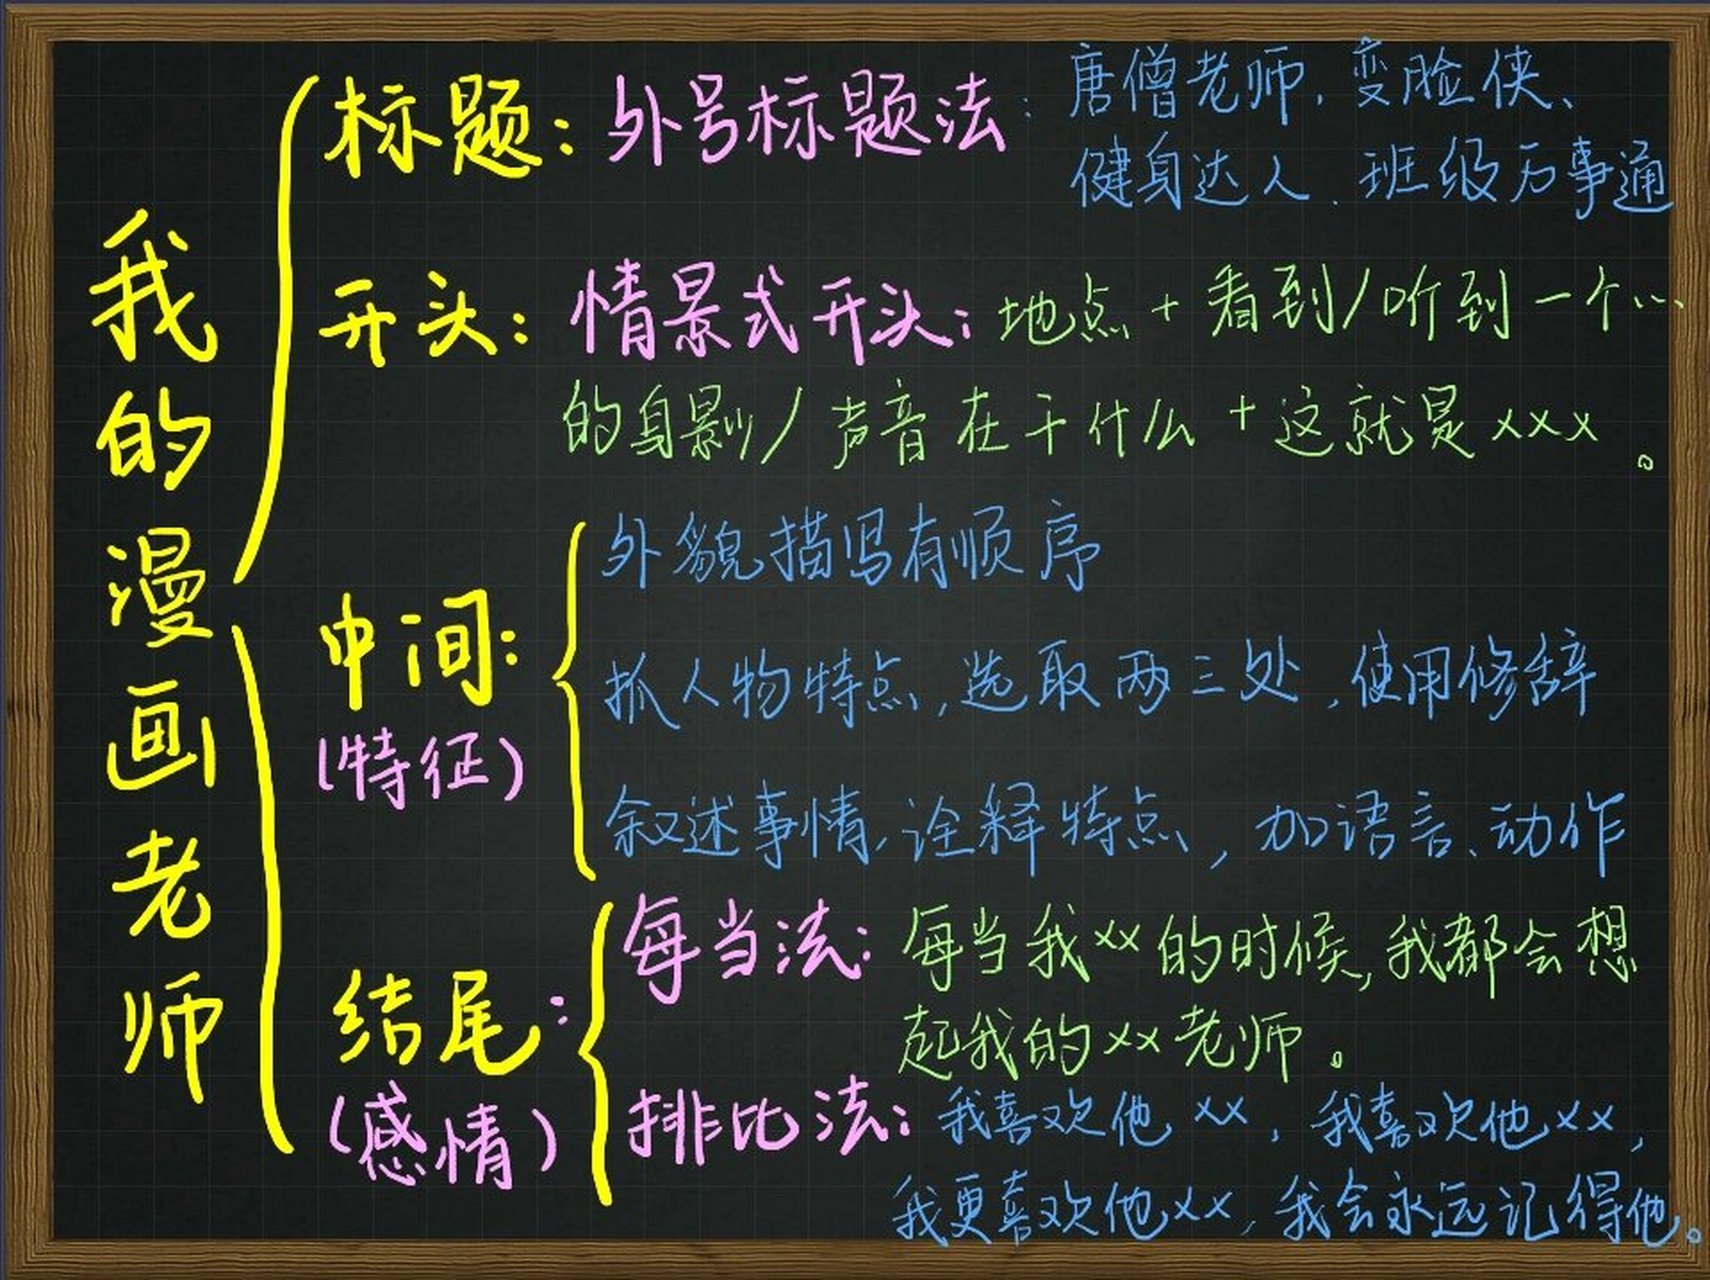 我的漫画老师
标题：外号标题法：唐僧老师、变脸侠、
健身达人、班级万事通
开头：情景式开头：地点+看到/听到一个…
的身影/声音在干什么+这就是xxx。
中间：
(特征)
外貌描写有顺序
抓人物特点，选取两三处，使用修辞
叙述事情，诠释特点，加语言、动作
结尾：
(感情)
每当法：每当我xx的时候，我都会想
起我的xx老师。
排比法：我喜欢他xx，我喜欢他xx，
我更喜欢他xx，我会永远记得他。